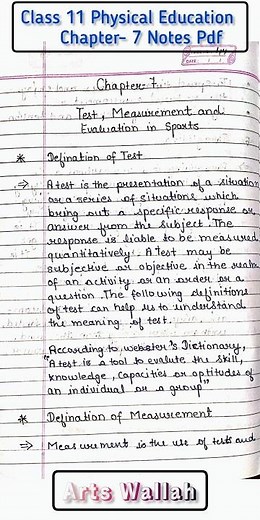 Class 11 Physical Education
Chapter- 7 Notes Pdf
Chapter: 7
Test, Measurement and
Evaluation in Sports
* Defination of Test
⇒ A test is the presentation of a situation
or a series of situations which
bring out a specific response or
answer from the subject. The
response is liable to be measured
quantitatively. A Test may be
subjective or objective in the realm
of an activity or an order or a
question. The following definitions
of test can help us to understand
the meaning of test.
According to, webster's Dictionary,
"A test is a tool to evaluate the skill,
knowledge, capacities or aptitudes of
an individual or a group"
* Defination of Measurement
⇒ Measurement is the use of tests and
Arts Wallah